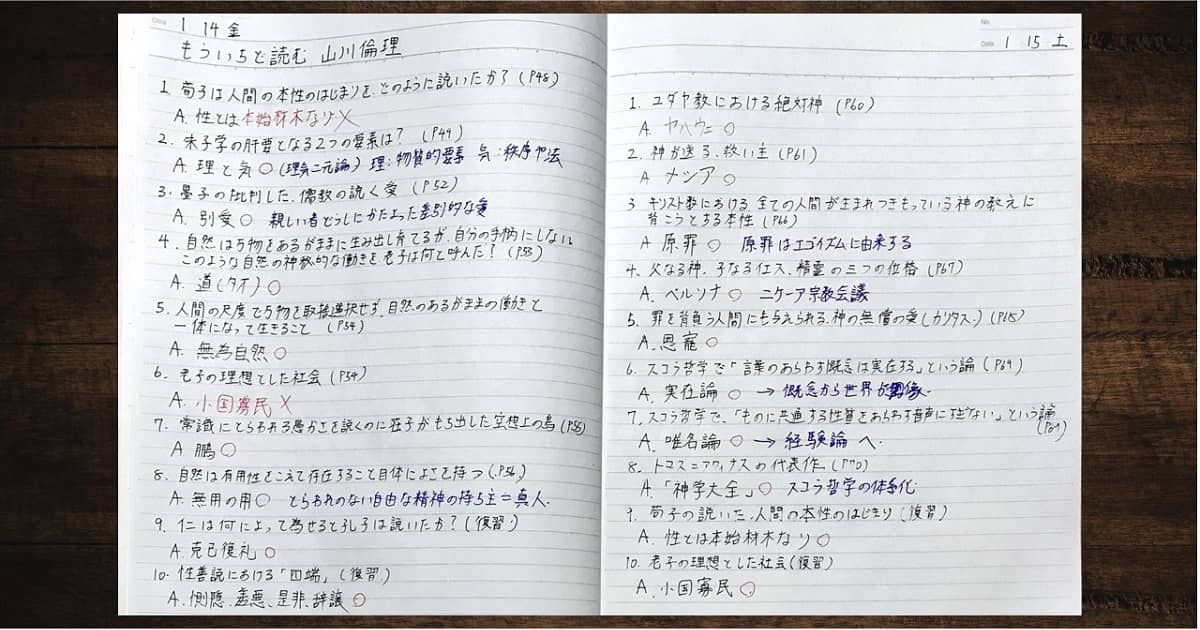 Date 1 14 金
もういちど読む 山川倫理
1. 荀子は人間の本性のはじまりを、どのように説いたか？ (P48)
A. 性とは本始材木なり ×
2. 朱子学の肝要となる2つの要素は？ (P49)
A. 理と気 ○ (理気二元論) 理：物質的要素 気：秩序や法
3. 墨子の批判した、儒教の説く愛 (P52)
A. 別愛 ○ 親しい者どうしにかたよった差別的な愛
4. 自然は万物をあるがままに生み出し育てるが、自分の手柄にしない
このような自然の神秘的な働きを老子は何と呼んだ？ (P53)
A. 道(タオ) ○
5. 人間の尺度で万物を取捨選択せず、自然のあるがままの働きと
一体になって生きること (P54)
A. 無為自然 ○
6. 老子の理想とした社会 (P54)
A. 小国寡民 ×
7. 常識にとらわれる愚かさを説くのに荘子がもち出した空想上の鳥 (P55)
A. 鵬 ○
8. 自然は有用性をこえて存在すること自体によさを持つ (P56)
A. 無用の用 ○ とらわれのない自由な精神の持ち主＝真人.
9. 仁は何によって為せると孔子は説いたか？ (復習)
A. 克己復礼 ○
10. 性善説における「四端」 (復習)
A. 惻隠、羞悪、是非、辞譲 ○
No.
Date 1 15 土
1. ユダヤ教における絶対神 (P60)
A. ヤハウェ ○
2. 神が送る、救い主 (P61)
A メシア ○
3 キリスト教における、全ての人間が生まれつきもっている神の教えに
背こうとする本性 (P66)
A 原罪 ○ 原罪はエゴイズムに由来する
4. 父なる神、子なるイエス、精霊の三つの位格 (P67)
A. ペルソナ ○ ニケーア宗教会議
5. 罪を背負う人間にも与えられる、神の無償の愛(カリタス) (P68)
A. 恩寵 ○
6. スコラ哲学で「言葉のあらわす概念は実在する」という論 (P69)
A. 実在論 ○ → 概念から世界が
7. スコラ哲学で、「ものに共通する性質をあらわす音声にすぎない」という論
(P69)
A. 唯名論 ○ → 経験論へ.
8. トマス＝アクィナスの代表作 (P70)
A.「神学大全」 ○ スコラ哲学の体系化
9. 荀子の説いた、人間の本性のはじまり (復習)
A. 性とは本始材木なり ○
10. 老子の理想とした社会 (復習)
A. 小国寡民 ○